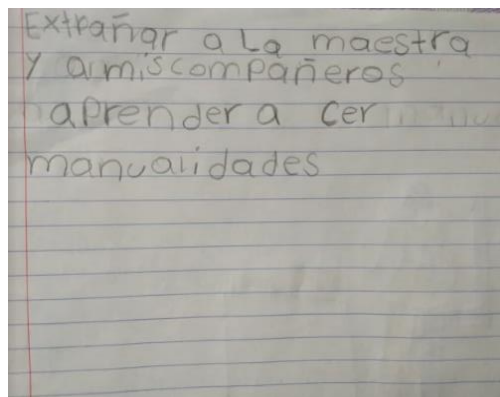 Extrañar a La maestra
y a mis compañeros
aprender a cer
manualidades